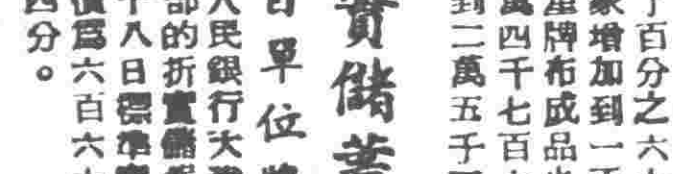 百分之六
增加到一
牌布成品
萬四千七百
到二萬五千
實儲蓄
日單位
人民銀行大
部的折實儲
十八日標準
價爲六百六
四分。